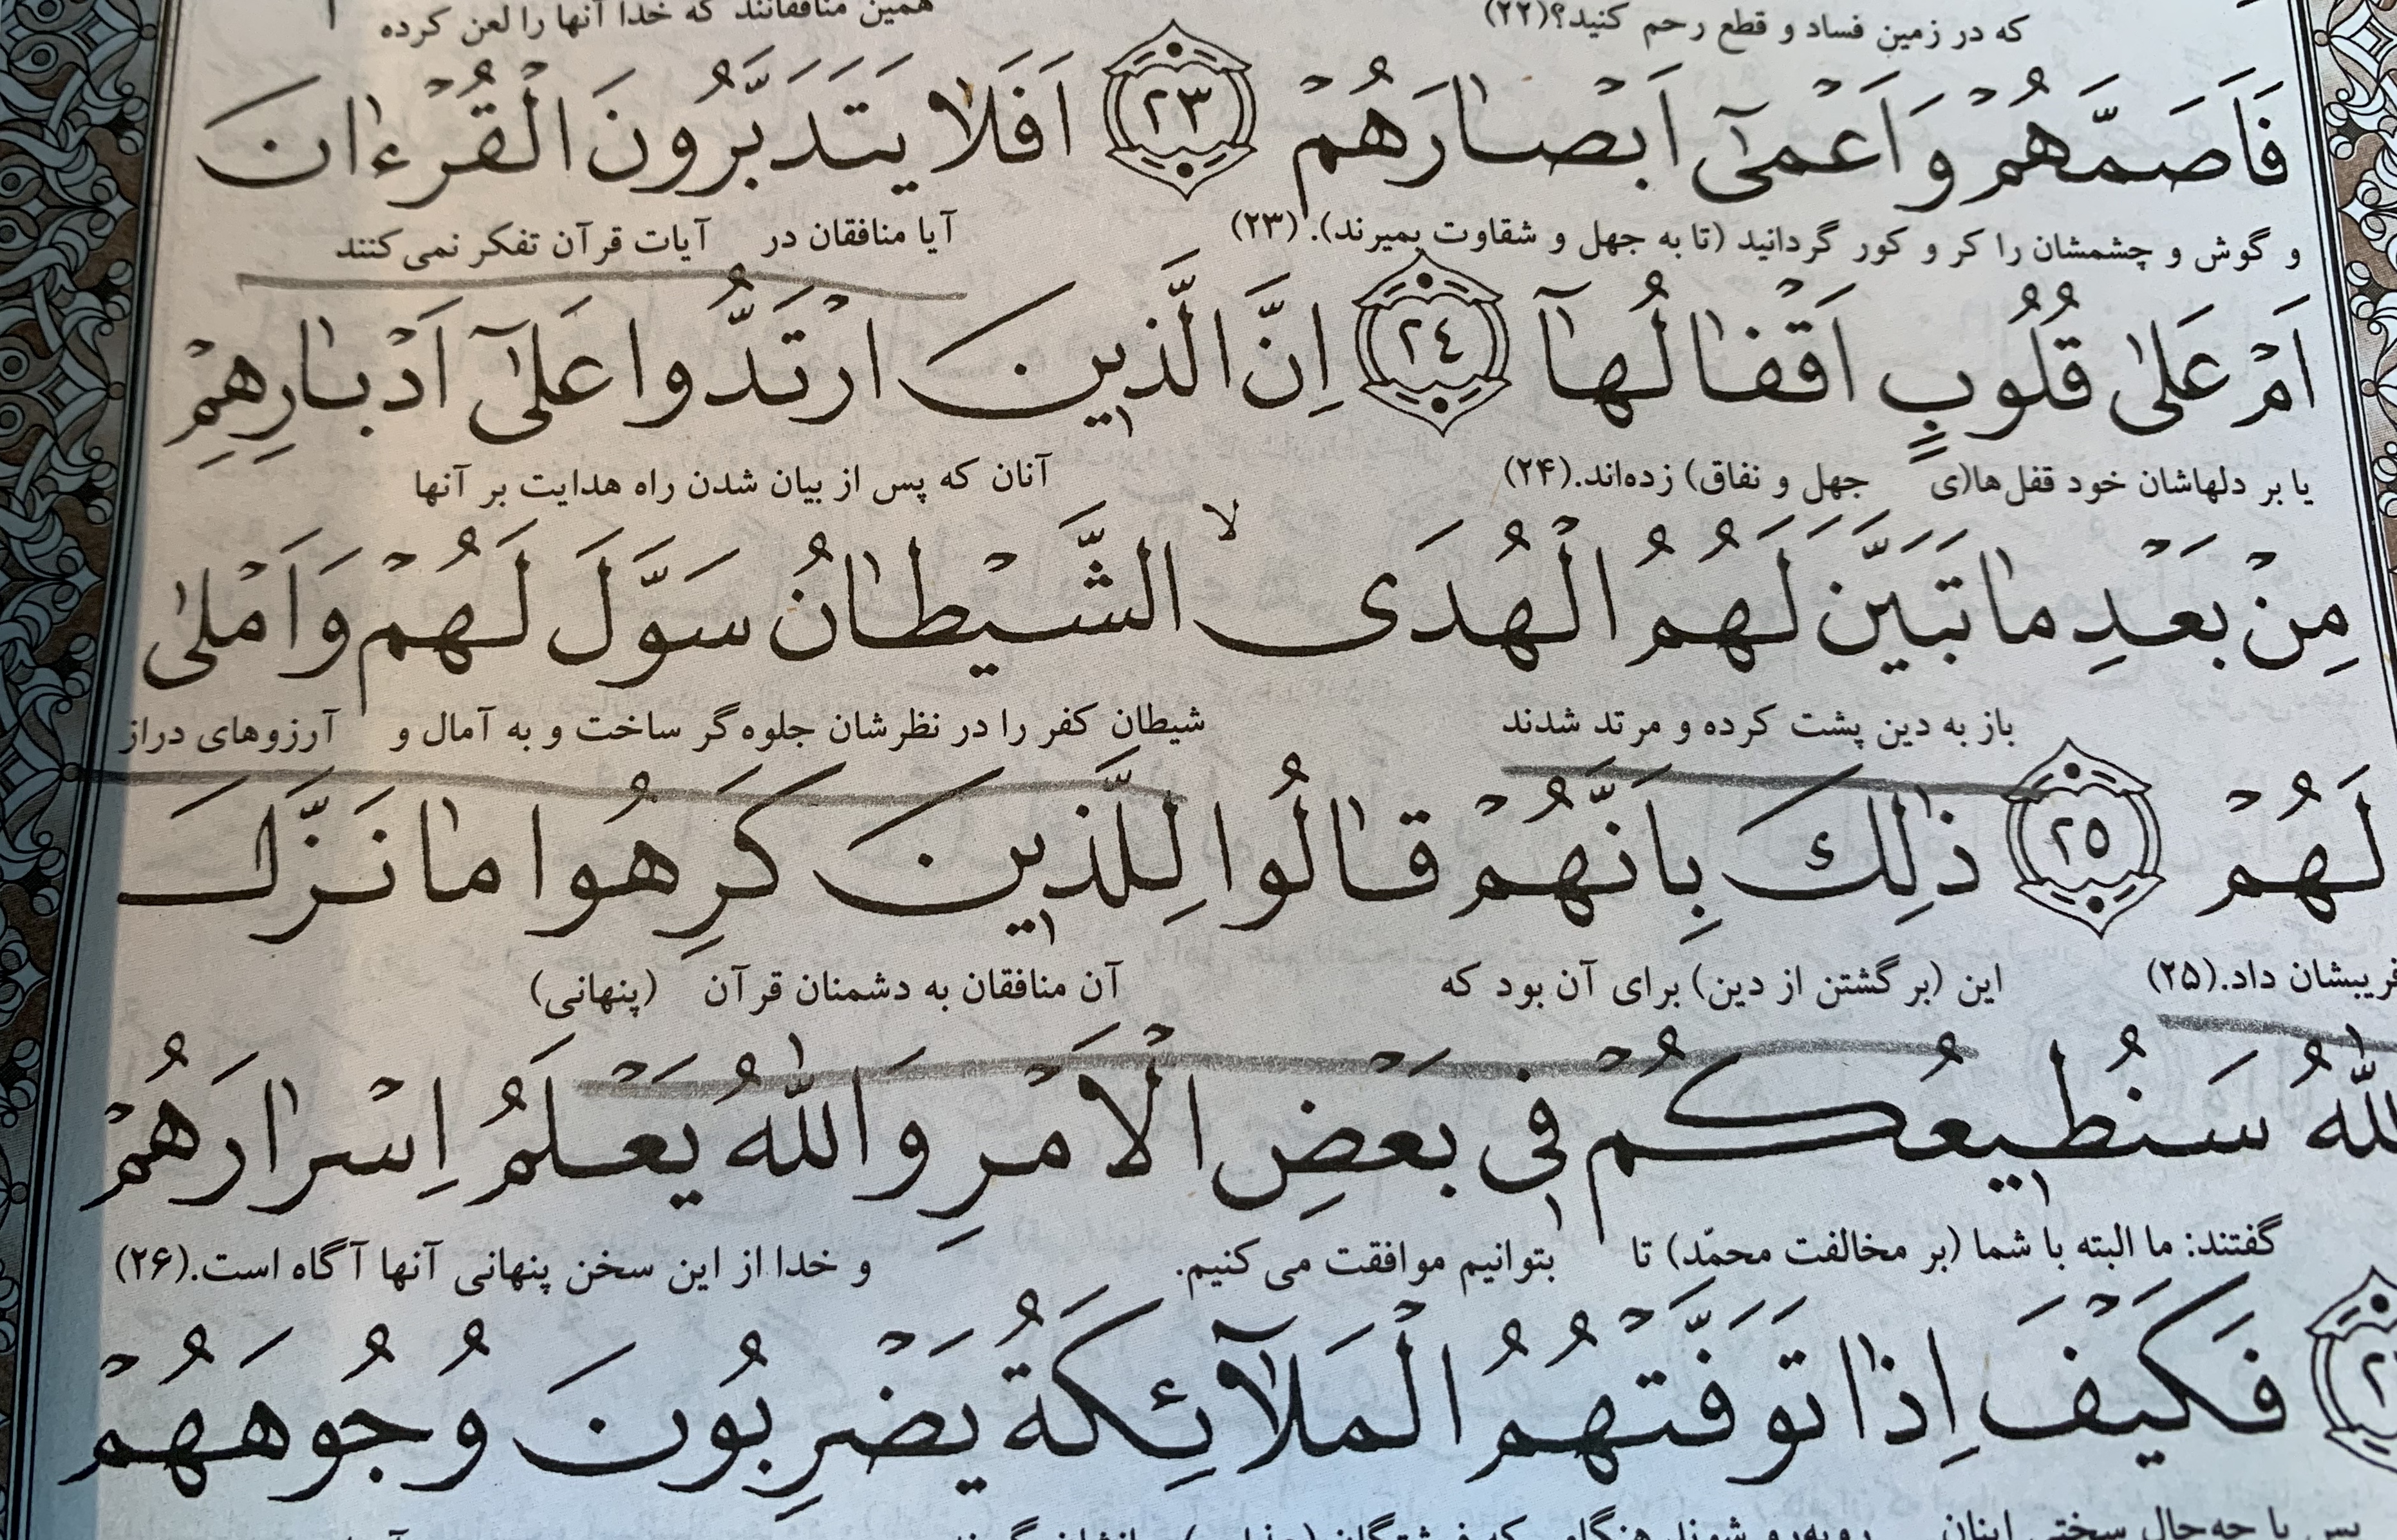 که در زمین فساد و قطع رحم کنید؟(۲۲) همین منافقانند که خدا آنها را لعن کرده
فَاَصَمَّهُمْ وَاَعْمىٰٓ اَبْصٰارَهُمْ ﴿٢٣﴾ اَفَلاٰ يَتَدَبَّرُونَ الْقُرْءٰانَ
و گوش و چشمشان را کر و کور گردانید (تا به جهل و شقاوت بمیرند). (۲۳) آیا منافقان در آیات قرآن تفکر نمی‌کنند
اَمْ عَلىٰ قُلُوبٍ اَقْفٰالُهٰآ ﴿٢٤﴾ اِنَّ الَّذينَ ارْتَدُّوا عَلىٰٓ اَدْبٰارِهِمْ
یا بر دلهاشان خود قفل‌ها(ی جهل و نفاق) زده‌اند.(۲۴) آنان که پس از بیان شدن راه هدایت بر آنها
مِنْ بَعْدِ مٰا تَبَيَّنَ لَهُمُ الْهُدَى لا الشَّيْطٰانُ سَوَّلَ لَهُمْ وَاَمْلىٰ
باز به دین پشت کرده و مرتد شدند شیطان کفر را در نظرشان جلوه‌گر ساخت و به آمال و آرزوهای دراز
لَهُمْ ﴿٢٥﴾ ذٰلِكَ بِاَنَّهُمْ قٰالُوا لِلَّذينَ كَرِهُوا مٰا نَزَّلَ
فریبشان داد.(۲۵) این (برگشتن از دین) برای آن بود که آن منافقان به دشمنان قرآن (پنهانی)
اللّٰهُ سَنُطيعُكُمْ فى بَعْضِ الْاَمْرِ وَاللّٰهُ يَعْلَمُ اِسْرٰارَهُمْ
گفتند: ما البته با شما (بر مخالفت محمّد) تا بتوانیم موافقت می‌کنیم. و خدا از این سخن پنهانی آنها آگاه است.(۲۶)
فَكَيْفَ اِذٰا تَوَفَّتْهُمُ الْمَلآٰئِكَةُ يَضْرِبُونَ وُجُوهَهُمْ